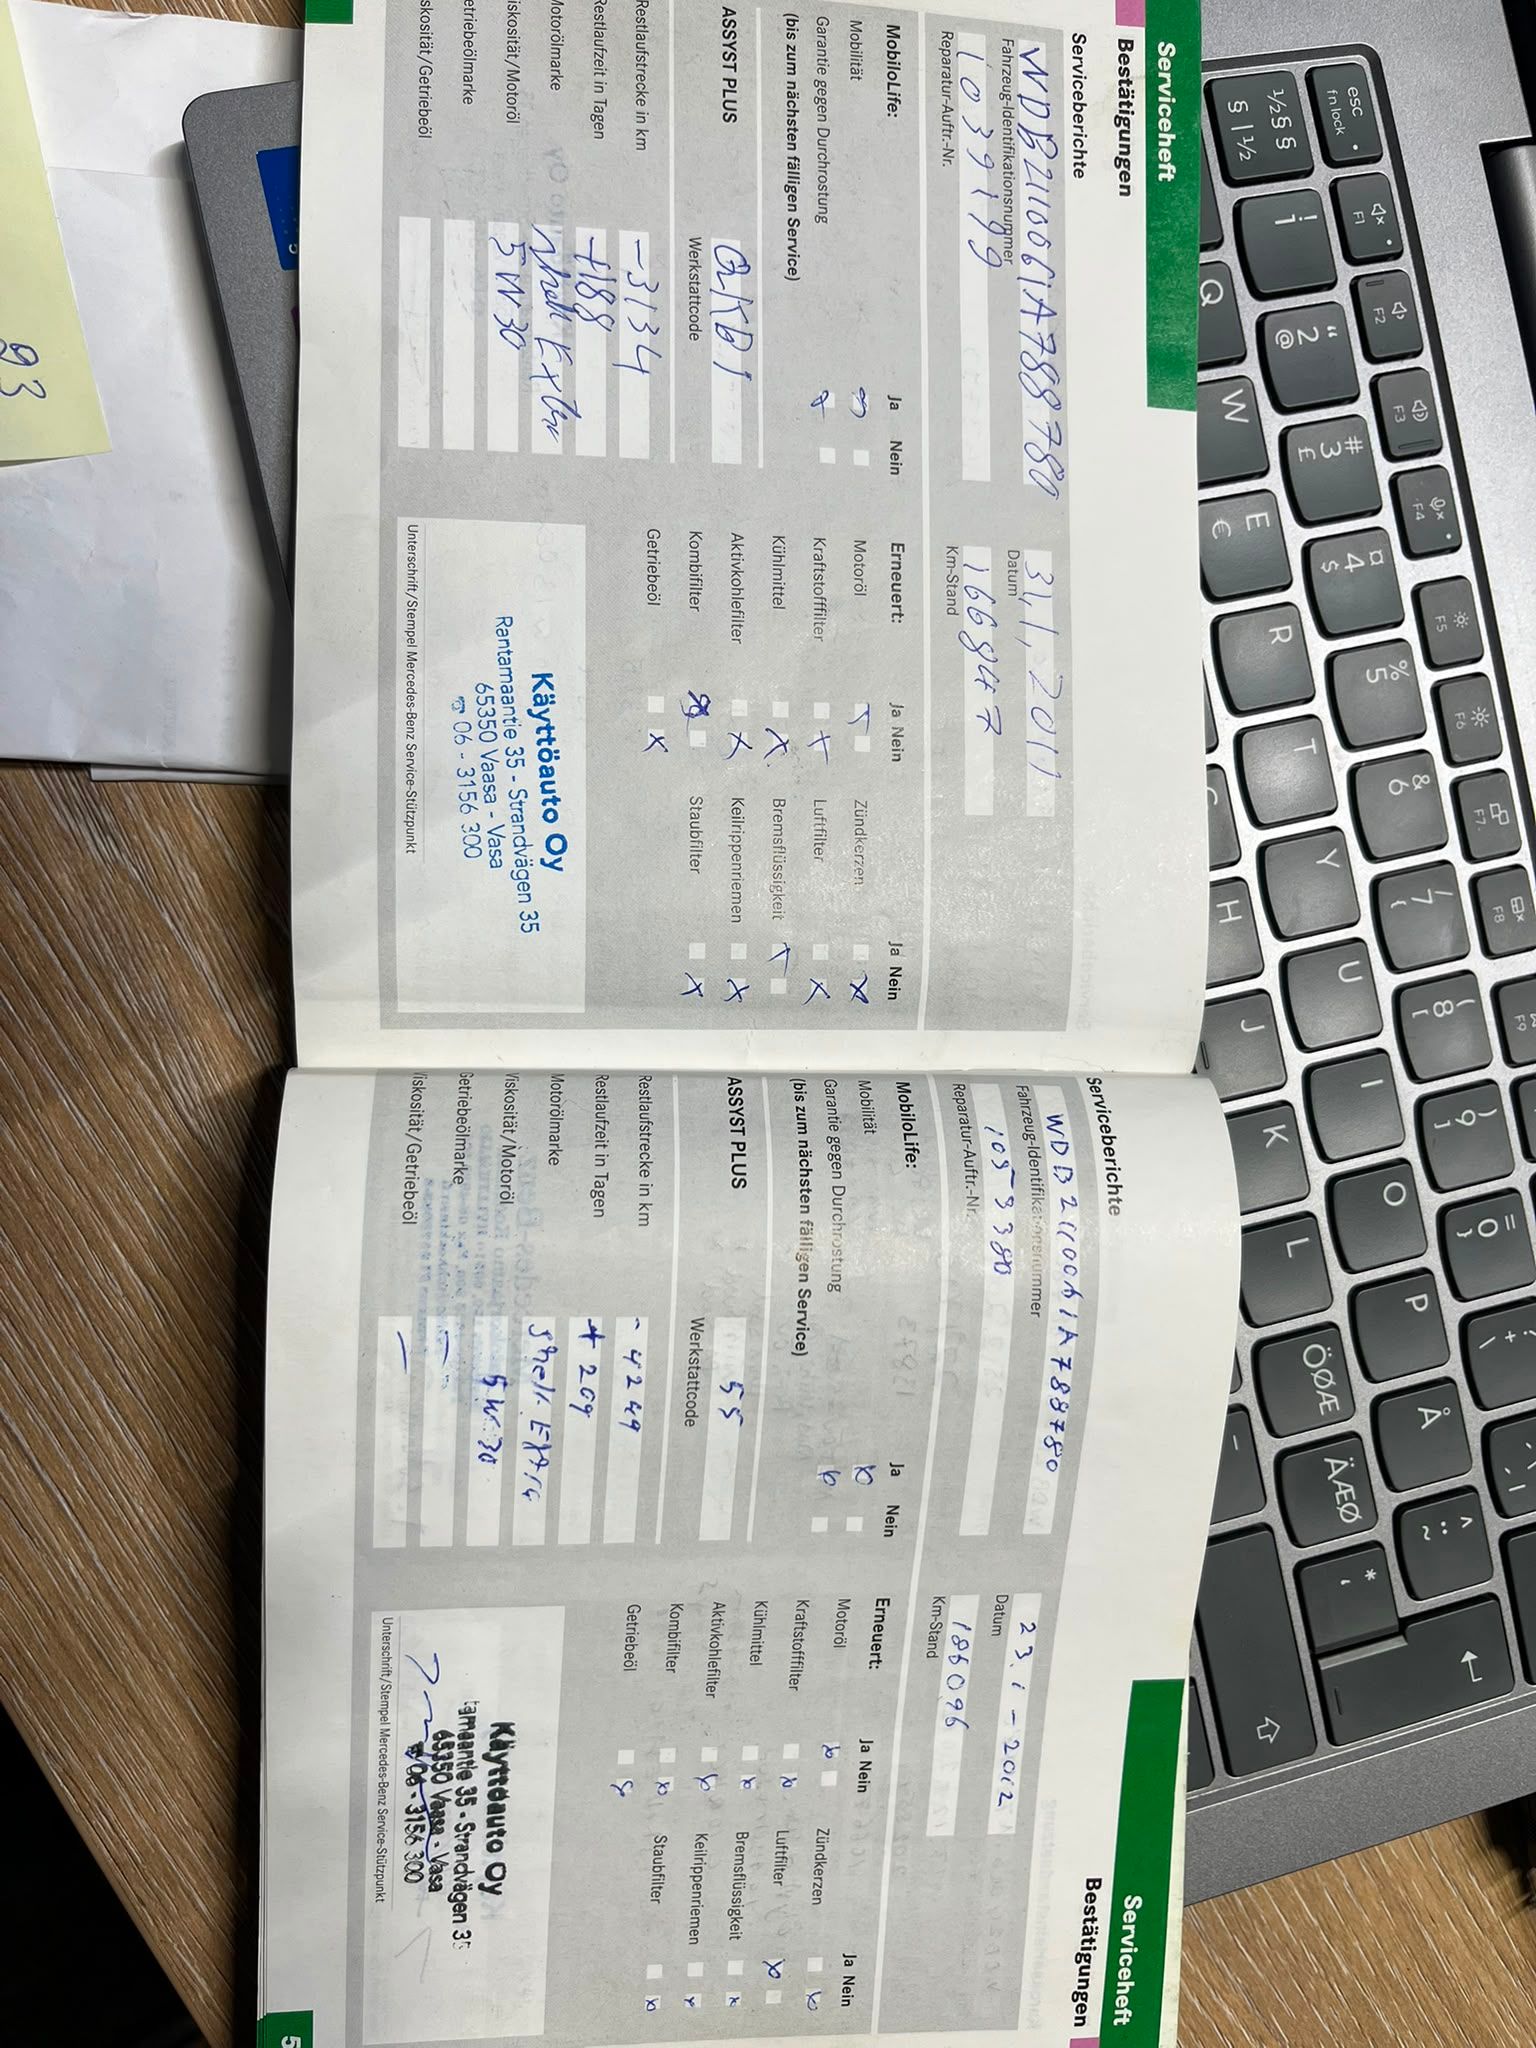 Serviceheft
Bestätigungen
Serviceberichte
WDB2110061A788780
Fahrzeug-Identifikationsnummer
31.1.2011
Datum
1039199
Reparatur-Auftr.-Nr.
166847
Km-Stand
MobiloLife:
Ja Nein
Mobilität
Garantie gegen Durchrostung
(bis zum nächsten fälligen Service)
ASSYST PLUS
Werkstattcode
Restlaufstrecke in km -3134
Restlaufzeit in Tagen +188
Motorölmarke Shell Extra
Viskosität/Motoröl 5W30
Getriebeölmarke
Viskosität/Getriebeöl
Erneuert: Ja Nein Ja Nein
Motoröl Zündkerzen
Kraftstofffilter Luftfilter
Kühlmittel Bremsflüssigkeit
Aktivkohlefilter Keilrippenriemen
Kombifilter Staubfilter
Getriebeöl
Käyttöauto Oy
Rantamaantie 35 - Strandvägen 35
65350 Vaasa - Vasa
☎ 06 - 3156 300
Unterschrift/Stempel Mercedes-Benz Service-Stützpunkt
Serviceheft
Bestätigungen
Serviceberichte
WDB2110061A788780
Fahrzeug-Identifikationsnummer
23.1-2012
Datum
1059380
Reparatur-Auftr.-Nr.
186096
Km-Stand
MobiloLife:
Ja Nein
Mobilität
Garantie gegen Durchrostung
(bis zum nächsten fälligen Service)
ASSYST PLUS 55
Werkstattcode
Restlaufstrecke in km -4249
Restlaufzeit in Tagen +209
Motorölmarke Shell Extra
Viskosität/Motoröl 5W-30
Getriebeölmarke —
Viskosität/Getriebeöl —
Erneuert: Ja Nein Ja Nein
Motoröl Zündkerzen
Kraftstofffilter Luftfilter
Kühlmittel Bremsflüssigkeit
Aktivkohlefilter Keilrippenriemen
Kombifilter Staubfilter
Getriebeöl
Käyttöauto Oy
tamaantie 35 - Strandvägen 35
65350 Vaasa - Vasa
☎ 06 - 3156 300
Unterschrift/Stempel Mercedes-Benz Service-Stützpunkt
5
93
esc
fn lock
F1
F2
F3
F4
F5
F6
F7
F8
F9
½ § §
§ | ½
! 1
" 2 @
# 3 £
¤ 4 $
% 5
& 6
/ 7 {
( 8 [
) 9 ]
= 0 }
+ \
Q W E € R T Y U I O P Å ^ ¨ ~
H J K L ÖØÆ ÄÆØ * '